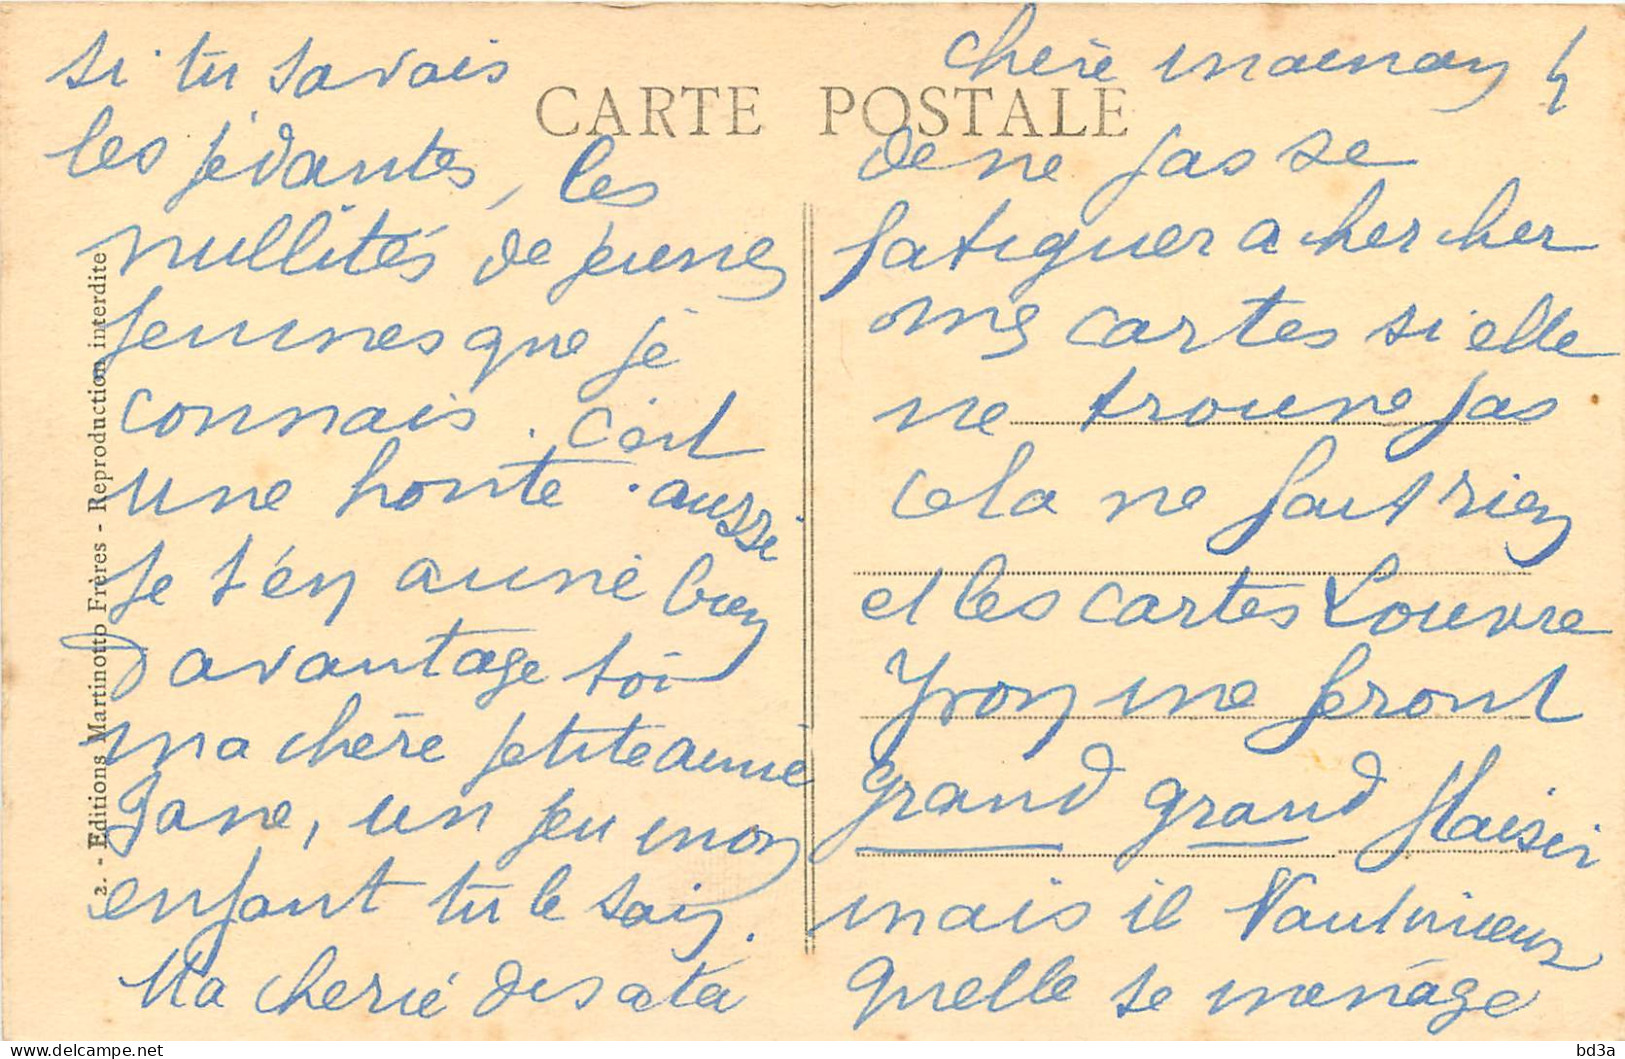 CARTE POSTALE
si tu savais
les pédantes, les
nullités de jeunes
femmes que je
connais. c'est
une honte. aussi
je t'en aime bien
davantage toi
ma chère petite amie
Jane, un peu mon
enfant tu le sais.
Ma cherie dis a ta
chère maman
de ne pas se
fatiguer a chercher
mes cartes si elle
ne trouve pas
cela ne fait rien
et les cartes Louvre
Yvon me feront
grand grand plaisir
mais il vaut mieux
quelle se ménage
2. - Editions Martinotto Frères - Reproduction interdite
bd3a